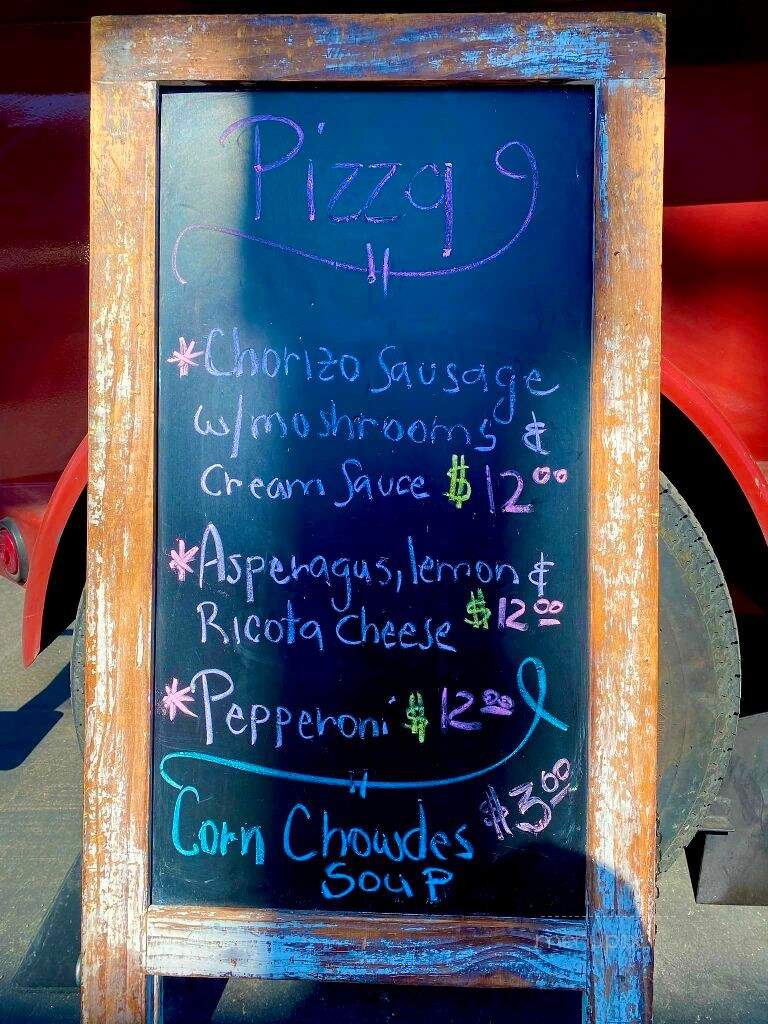 Pizza
*Chorizo Sausage
w/moshrooms &
Cream Sauce $12.00
*Asperagus, lemon &
Ricota cheese $12.00
*Pepperoni $12.00
Corn Chowdes $3.00
Soup